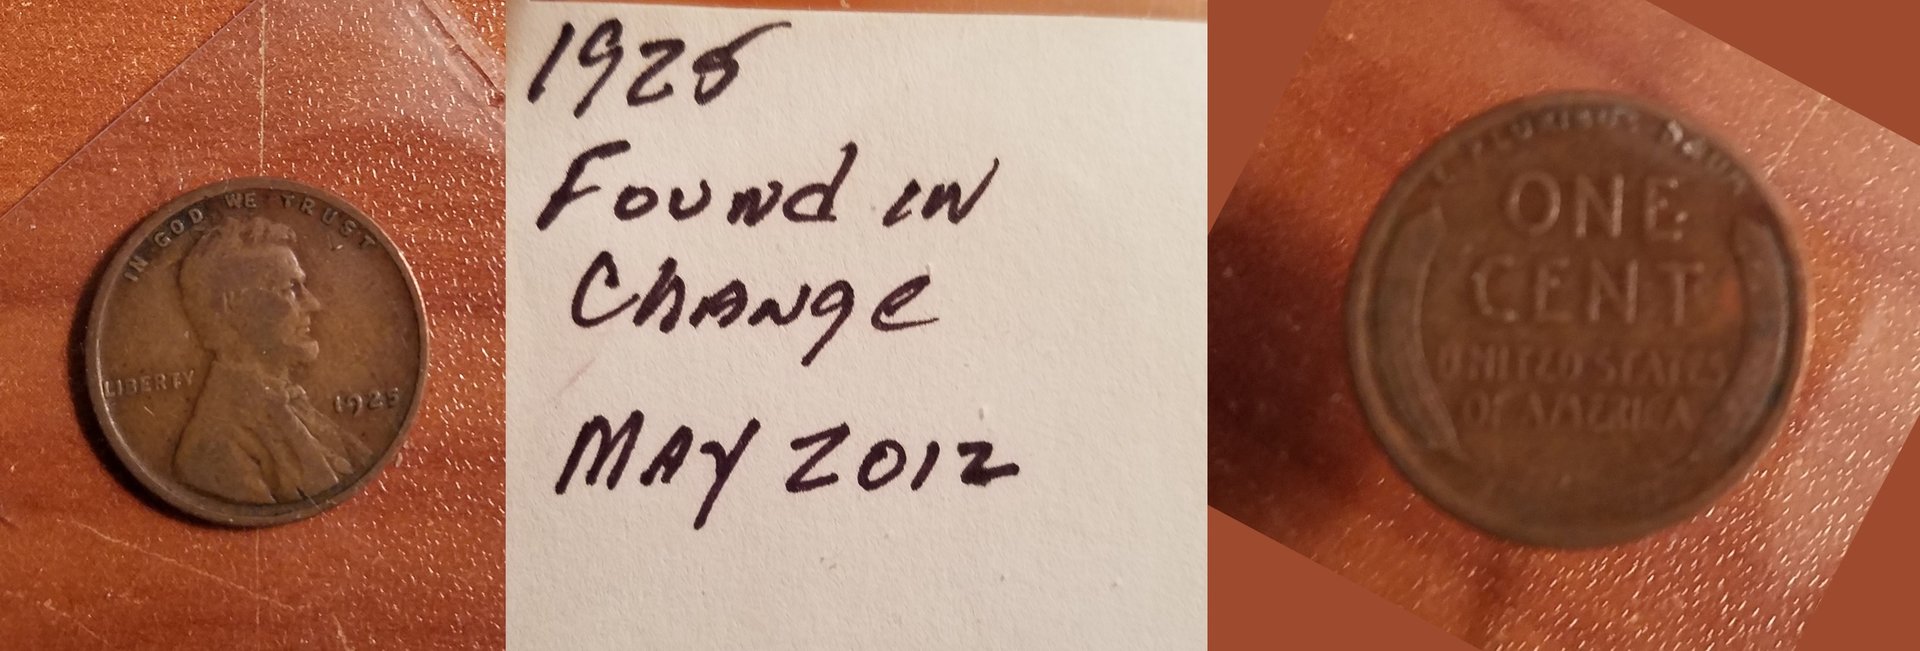 IN GOD WE TRUST
LIBERTY
1925
1925
Found in
Change
May 2012
E PLURIBUS UNUM
ONE
CENT
UNITED STATES
OF AMERICA